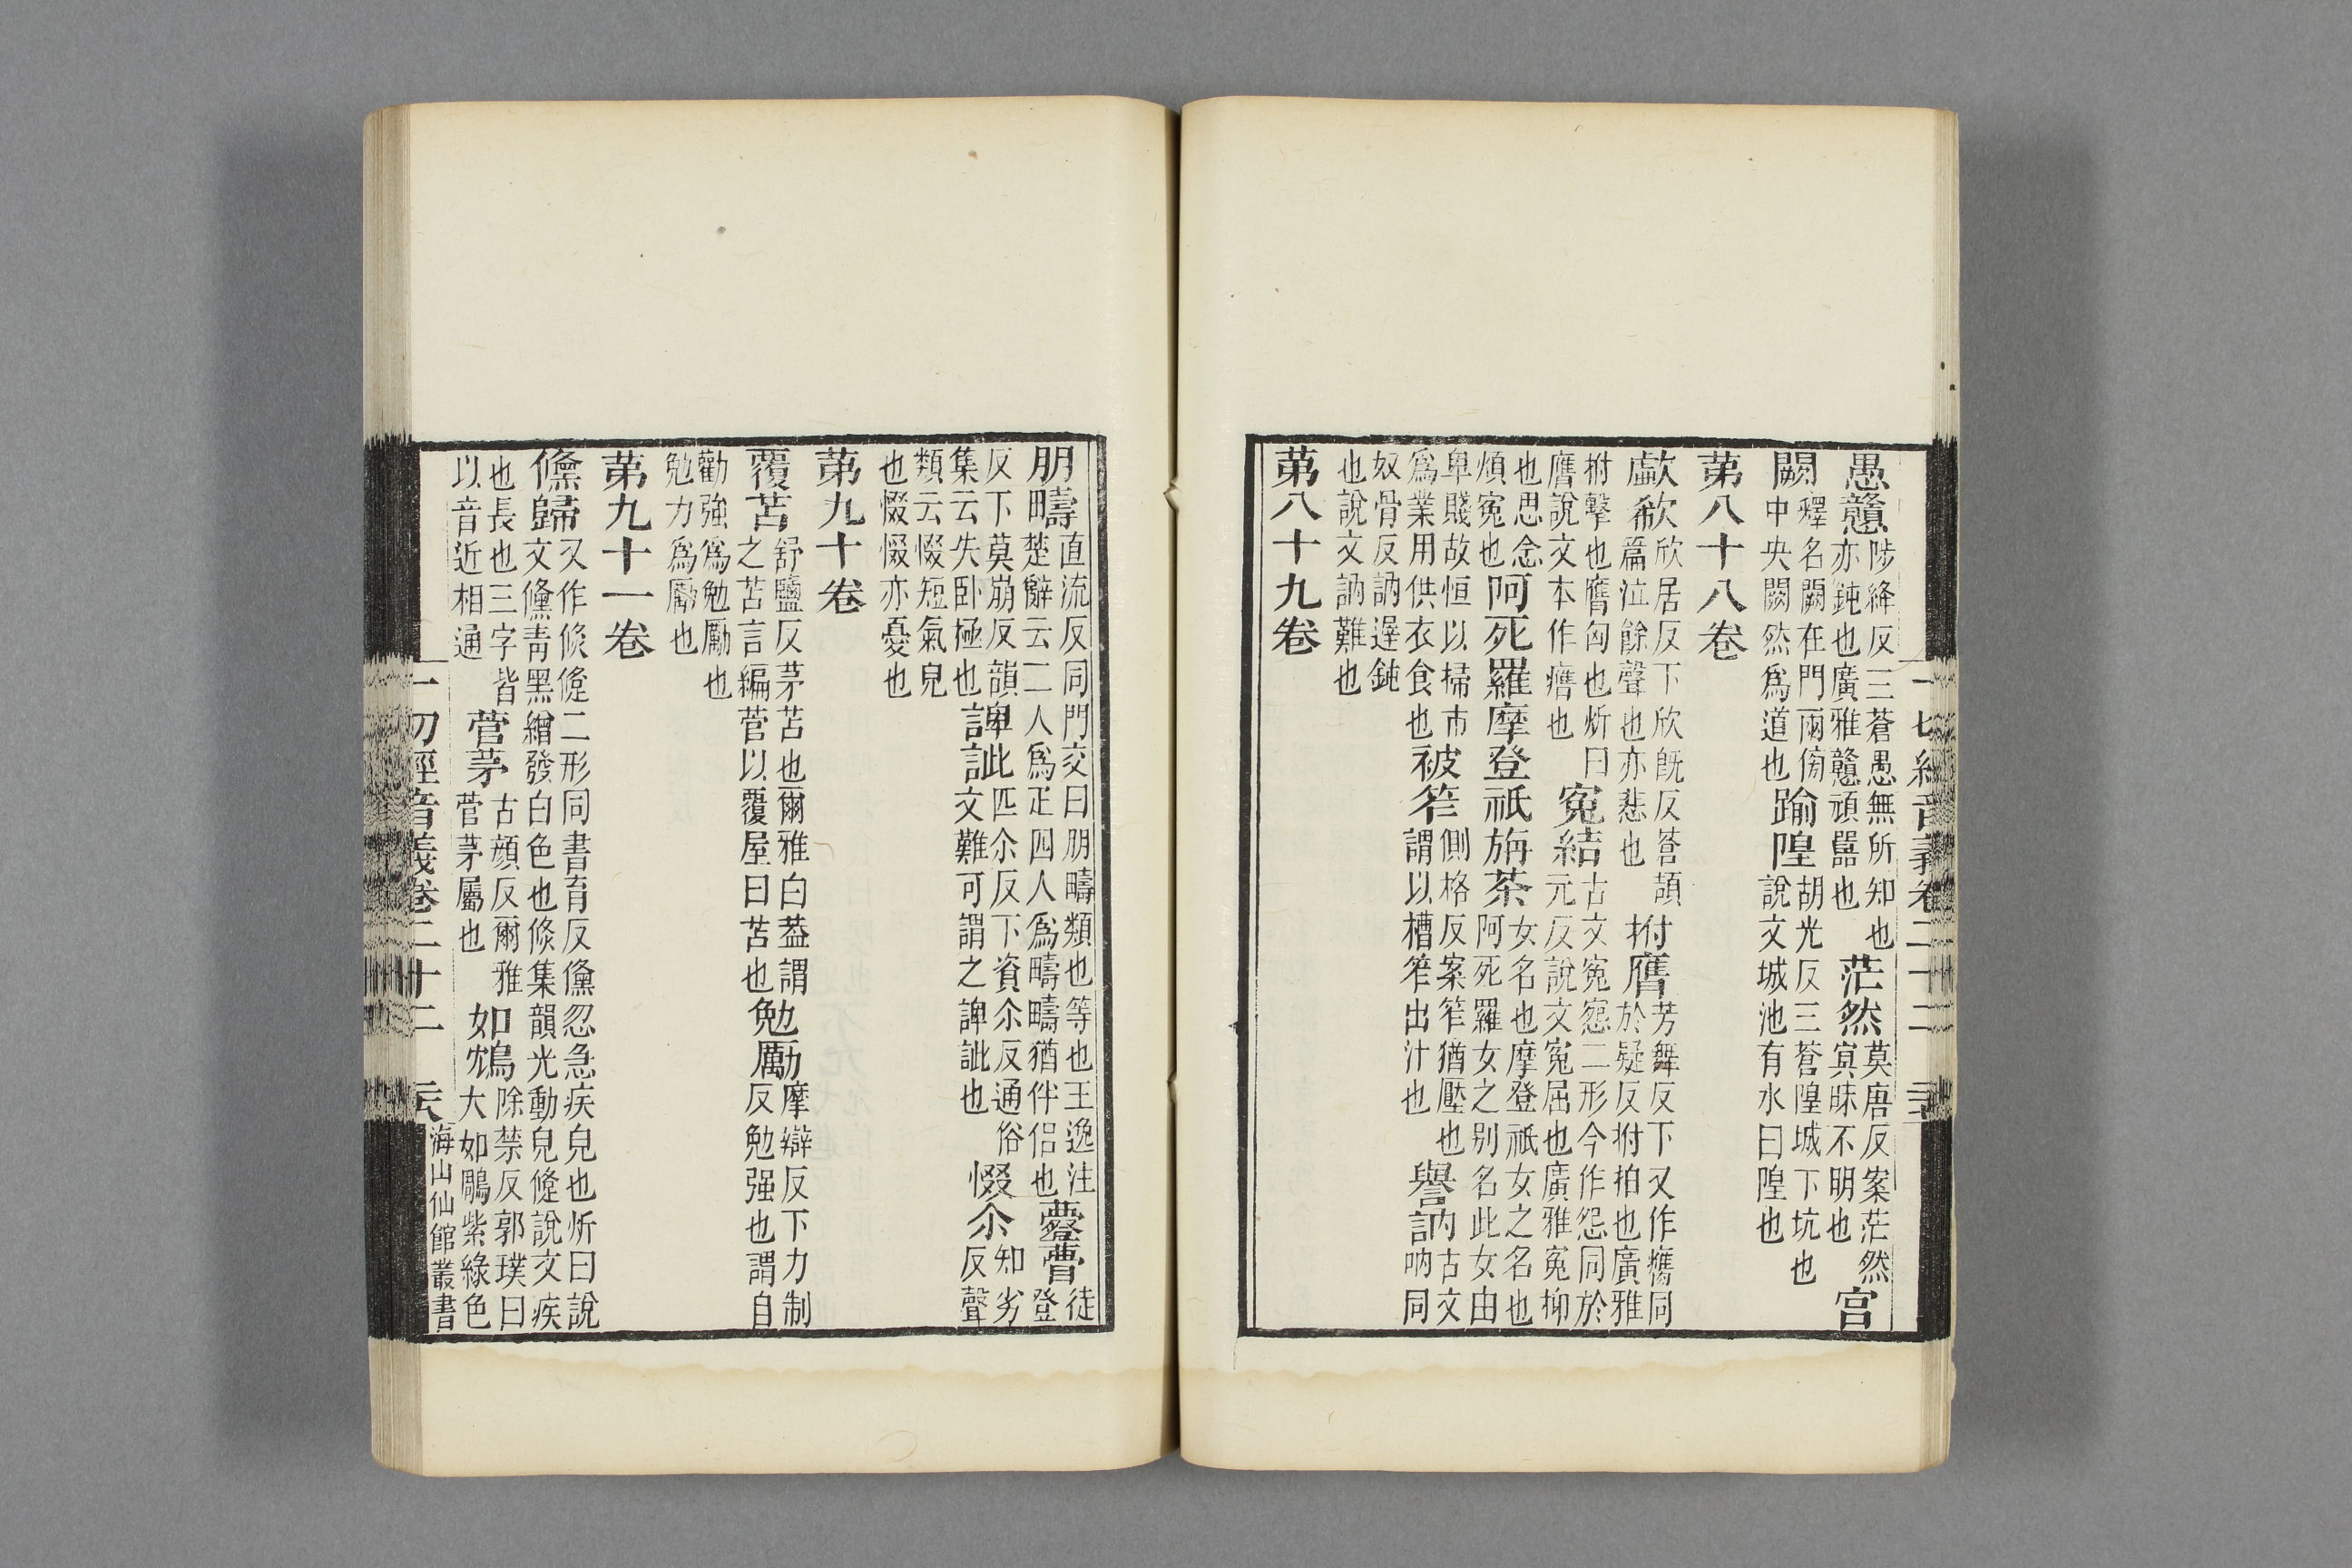 一切經音義卷二十二
愚戇陟絳反三蒼愚無所知也亦鈍也廣雅戇頑嚚也茫然莫唐反案茫然冥昧不明也宫
闕釋名闕在門兩傍中央闕然爲道也踰隍胡光反三蒼隍城下坑也說文城池有水曰隍也
第八十八卷
歔欷欣居反下欣旣反蒼頡篇泣餘聲也亦悲也拊膺芳舞反下又作㿣同於疑反拊拍也廣雅
拊擊也膺匈也炘曰膺說文本作𤺄也寃結古文寃惌二形今作怨同於元反說文寃屈也廣雅寃抑
也思念煩寃也阿死羅摩登祇旃茶女名也摩登祇女之名也阿死羅女之别名此女由
卑賤故恒以掃市爲業用供衣食也被笮側格反案笮猶壓也謂以槽笮出汁也譽訥古文吶同
奴骨反訥遟鈍也說文訥難也
第八十九卷
朋疇直流反同門交曰朋疇類也等也王逸注楚辭云二人爲疋四人爲疇疇猶伴侣也薹瞢徒登
反下莫崩反韻集云失卧極也諀訿匹尒反下資尒反通俗文難可謂之諀訿也惙尒知劣反聲
類云惙短氣皃也惙惙亦憂也
第九十卷
覆苫舒鹽反茅苫也爾雅白葢謂之苫言編菅以覆屋曰苫也勉厲力摩辯反下力制反勉强也謂自
勸強爲勉勵也勉力爲勵也
第九十一卷
儵歸又作倏𠐊二形同書育反儵忽急疾皃也炘曰說文儵靑黑繒發白色也倏集韻光動皃𠐊說文疾
也長也三字皆以音近相通菅茅古顔反爾雅菅茅屬也如鴆除禁反郭璞曰大如鵰紫綠色
一切經音義卷二十二
海山仙館叢書